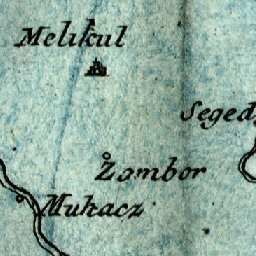 Melikul
Seged
Zombor
Muhacz